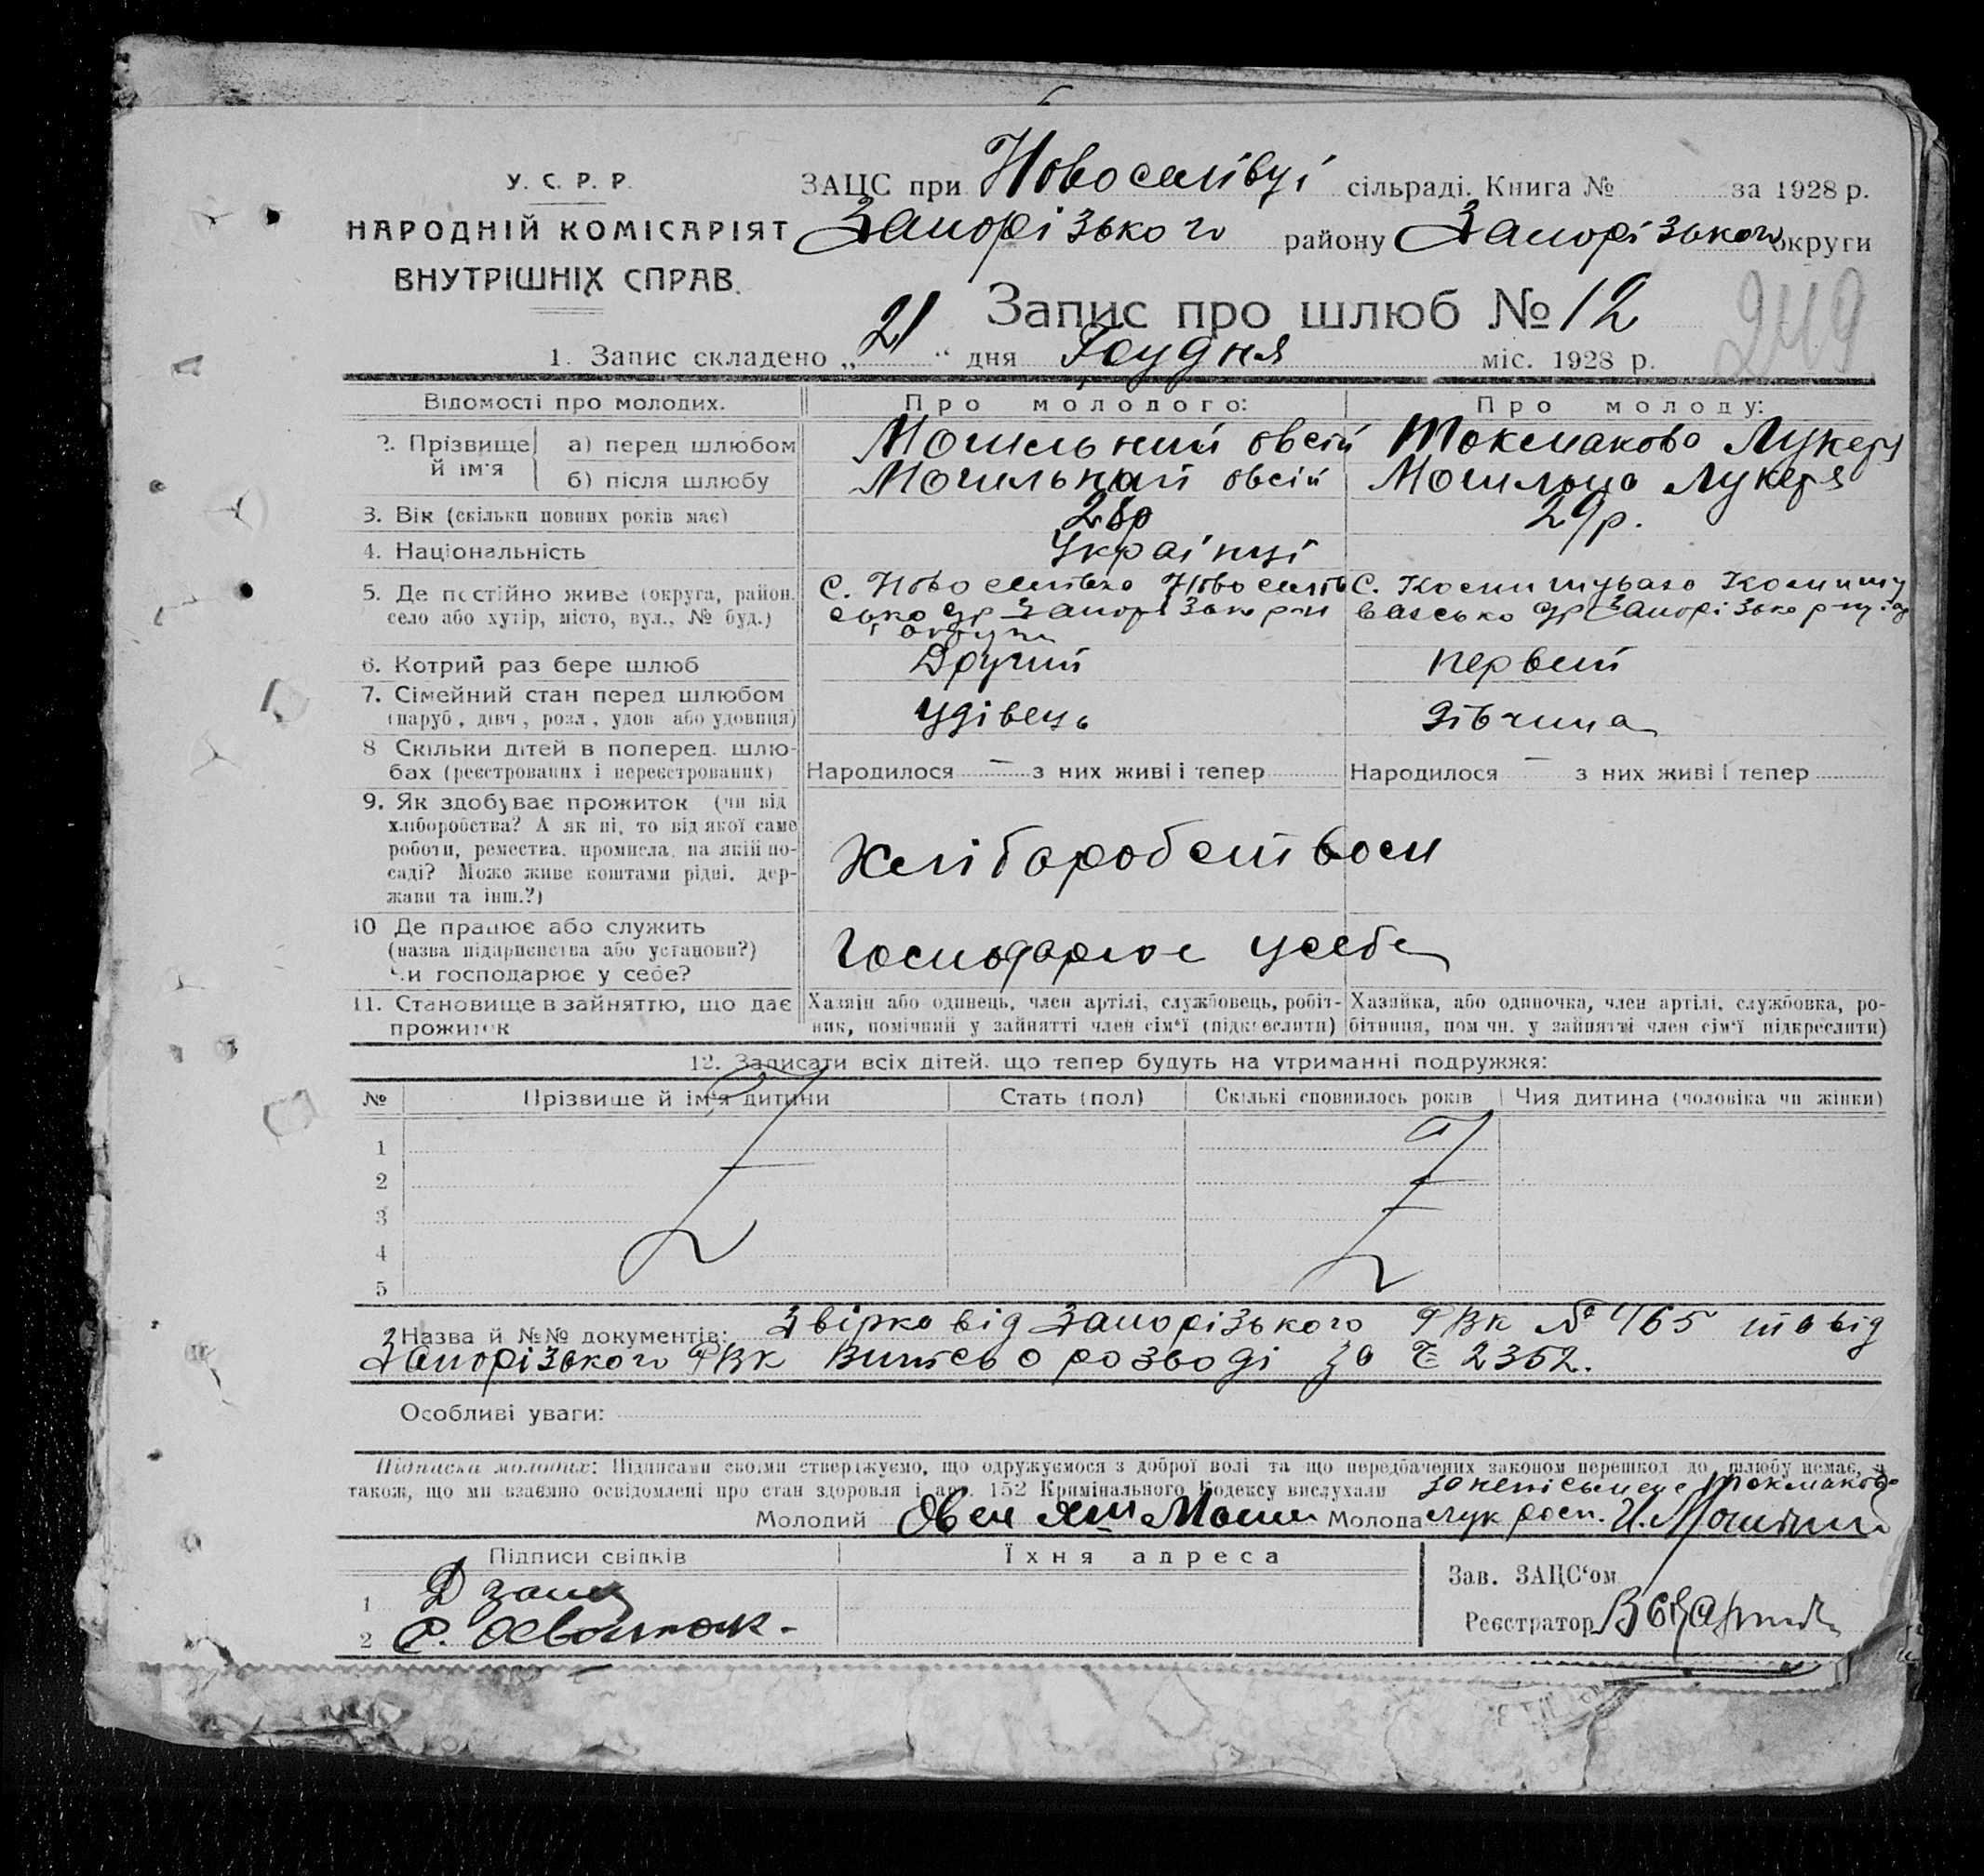 У. С. Р. Р.
НАРОДНІЙ КОМІСАРІЯТ
ВНУТРІШНІХ СПРАВ.
ЗАЦС при Новоселівці сільраді. Книга № за 1928 р.
Запорізького району Запорізького округи
Запис про шлюб № 12
249
1. Запис складено „ 21 “ дня Грудня міс. 1928 р.
Відомості про молодих. Про молодого: Про молоду:
2. Прізвище й ім'я а) перед шлюбом Могильний Овсій Токмакова Лукеря
б) після шлюбу Могильний Овсій Могильна Лукеря
3. Вік (скільки повних років має) 28р 29р.
4. Національність Українці
5. Де постійно живе (округа, район, С. Новоселівка Новоселів С. Кошу
село або хутір, місто, вул., № буд.) сько ср Запорізько р-ну сько ср Запорізько р-ну
і округи
6. Котрий раз бере шлюб Другий первий
7. Сімейний стан перед шлюбом
(паруб., дівч., розл., удов. або удовиця) Удівець дівчина
8 Скільки дітей в поперед. шлюбах (реєстрованих і нереєстрованих) Народилося — з них живі і тепер Народилося — з них живі і тепер
9. Як здобуває прожиток (чи від
хліборобства? А як ні, то від якої саме
роботи, ремества, промисла, на якій по-
саді? Може живе коштами рідні, дер-
жави та інш.?)
Хліборобством
10 Де працює або служить
(назва підприємства або установи?)
Чи господарює у себе?
Господарює у себе
11. Становище в зайняттю, що дає Хазяїн або одинець, член артілі, службовець, робіт- Хазяйка, або одиночка, член артілі, службовка, ро-
прожиток ник, помічний у зайнятті член сім'ї (підкреслити) бітниця, помічн. у зайнятті член сім'ї підкреслити)
12. Записати всіх дітей, що тепер будуть на утриманні подружжя:
№ Прізвище й ім'я дитини Стать (пол) Скількі сповнилось років Чия дитина (чоловіка чи жінки)
1
2
3
4
5
Назва й №№ документів: Звірка від Запорізького РВК № 465 та від
Запорізького РВК Витяг о розводі за № 2352.
Особливі уваги:
Підписка молодих: Підписами своїми стверджуємо, що одружуємося з доброї волі та що передбачених законом перешкод до шлюбу немає, а
також, що ми взаємно освідомлені про стан здоровля і арт. 152 Кримінального Кодексу вислухали
Молодий Молода
Підписи свідків Їхня адреса
Зав. ЗАЦС'ом
1
Реєстратор
2